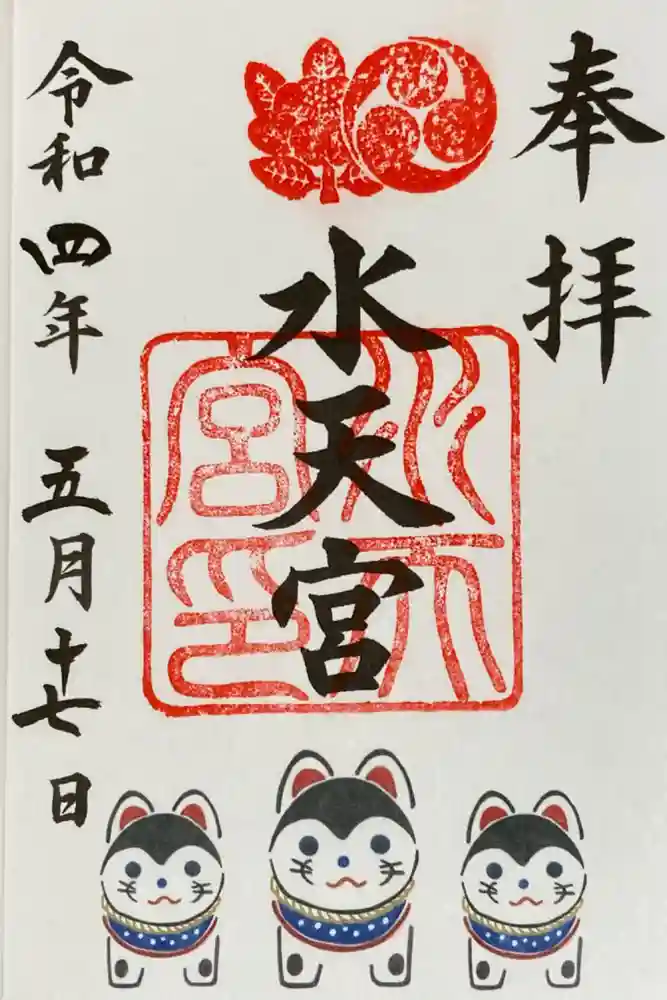 奉拝
水天宮
水天宮印
令和四年 五月十七日